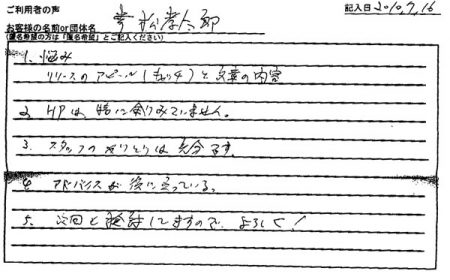 ご利用者の声
記入日 2010,9,16
お客様の名前or団体名
(匿名希望の方は「匿名希望」とご記入ください)
1. 悩み
リリースのアピール(もっ4)と文章の内容
2. HPは特に
3. スタッフのやりとりは充分です。
4. アドバイスが役に立っている。
5. 次回も検討してますので、よろしく!